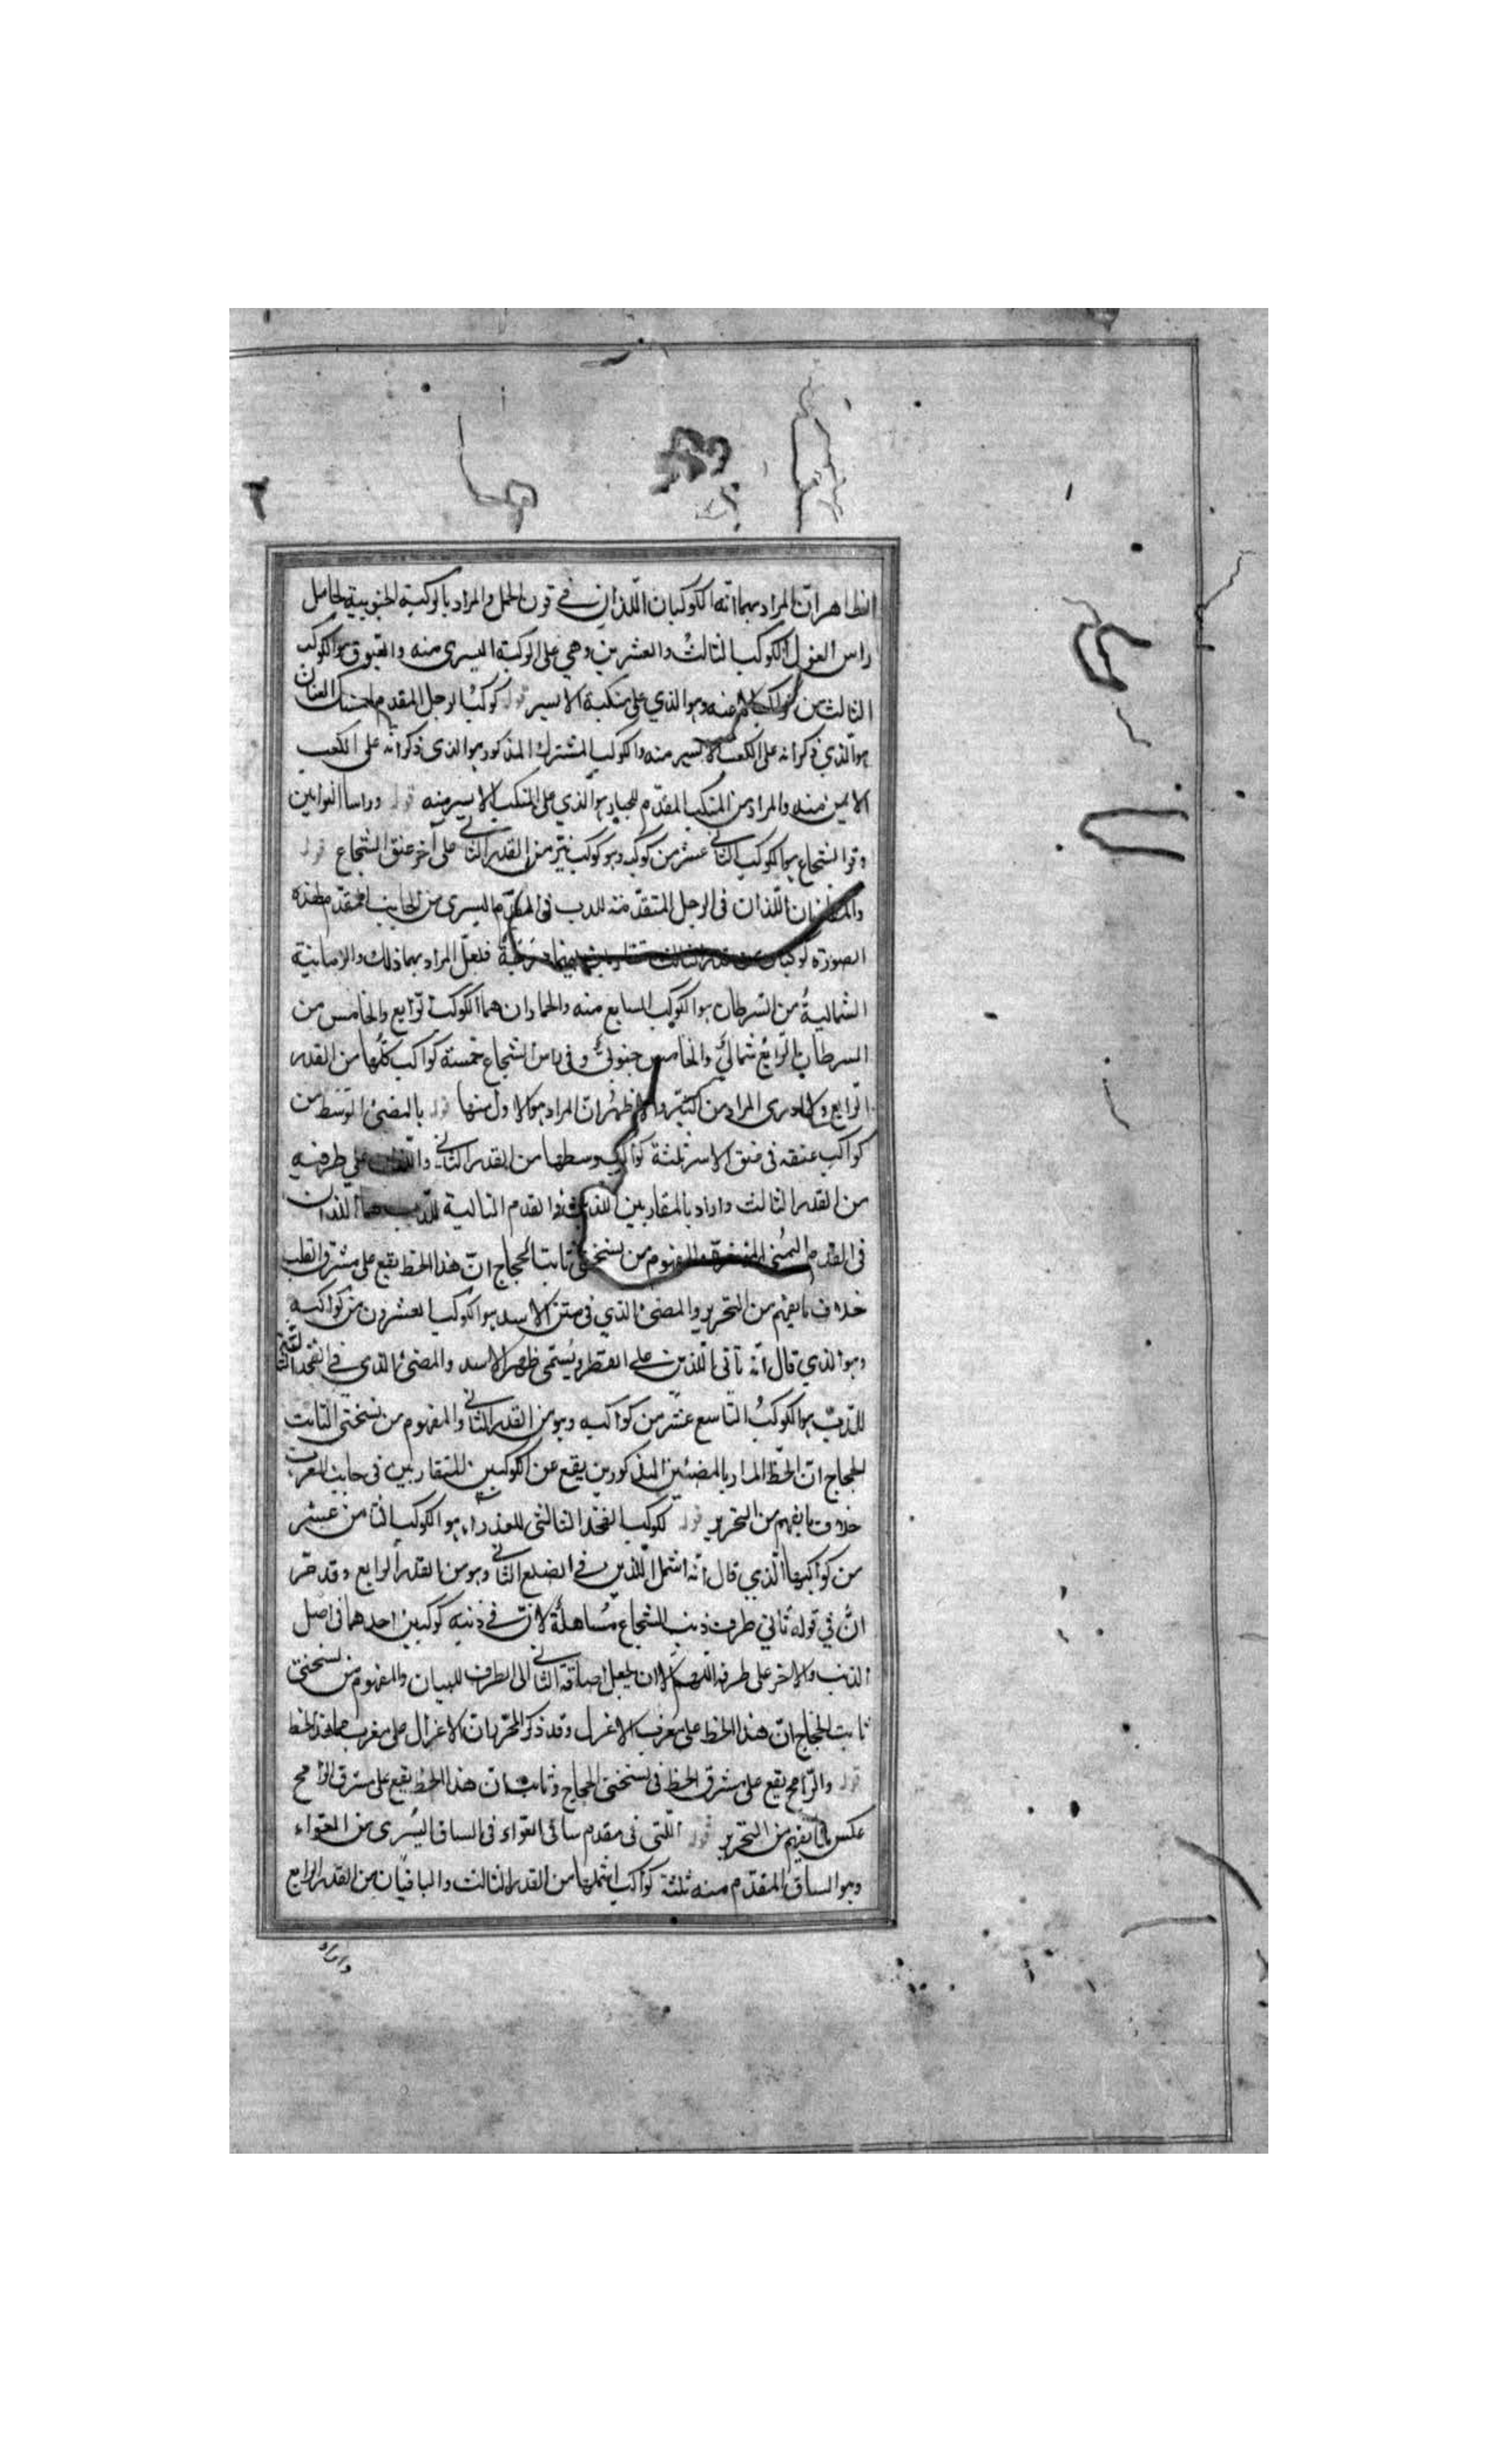 الظاهر ان المراد بهما انه الكوكبان اللذان في قرن الحمل والمراد بالركبة الجنوبية لحامل
راس الغول الكوكب الثالث والعشرين وهي على الركبة اليسرى منه والعيوق هو الكوكب
الثالث من منه وهو الذي على منكبه الايسر قوله كوكب الرجل المقدم لممسك العنان
هو الذي ذكر انه على الكعب الايسر منه والكوكب المشترك المذكور هو الذي ذكر انه على الكعب
الايمن منه والمراد من المنكب المقدم للجبار هو الذي على المنكب الايسر منه قوله وراسا التوامين
وقوا الشجاع هما الكوكب الثاني عشر من كوكبه وهو كوكب نير من القدر الثاني على آخر عنق الشجاع قوله
اللذان في الرجل المتقدمة للدب في المقدم اليسرى من الجانب المتقدم لهذه
الصورة كوكبان من قدر الثالث فلعل المراد بهما ذلك والاربيانية
الشمالية من السرطان هو الكوكب السابع منه والحماران هما الكوكب الرابع والخامس من
السرطان الرابع شمالي والخامس جنوبي وفي راس الشجاع خمسة كواكب كلها من القدر
الرابع ولا ادرى المراد من كثيره والاظهر ان المراد هو الاول منها قوله بالمضئ المتوسط من
كواكب عنقه في عنق الاسد ثلثة كواكب وسطها من القدر الثاني واللذان على طرفيه
من القدر الثالث واراد بالمتقاربين اللذين في القدم التالية للدب هما اللذان
في القدم اليمنى المؤخرة والمفهوم من نسختي ثابت الحجاج ان هذا الخط يقع على مشرق القلب
خلاف ما يفهم من التحرير والمضئ الذي في متن الاسد هو الكوكب العشرون من كواكبه
وهو الذي قال انه تاني اللذين على القطر ويسمى ظهر الاسد والمضئ الذي في الفخذ
للدب هو الكوكب التاسع عشر من كواكبه وهو من القدر الثاني والمفهوم من نسختي الثابت
الحجاج ان الخط المار بالمضئين المذكورين يقع عن الكوكبين المتقاربين في جانب المغرب
خلاف ما يفهم من التحرير قوله ككوكب الفخذ التالثى للعذراء هو الكوكب الثامن عشر
من كواكبها الذي قال انه اشمل اللذين في الضلع الثاني وهو من القدر الرابع وقد مر
ان في قوله ثاني طرف ذنب الشجاع مساهلة لان في ذنبه كوكبين احدهما في اصل
الذنب والاخر على طرفه اللهم الا ان يجعل اضافة الثاني الى الطرف للبيان والمفهوم من نسختي
ثابت الحجاج ان هذا الخط على مغرب الاعزل وقد ذكر المحرر بان الاعزل على مغرب هذا الخط
قوله والرامح يقع على مشرق الخط في نسختي الحجاج وثابت ان هذا الخط يقع على مشرق الرامح
عكس ما يفهم من التحرير قوله اللتى في مقدم ساقى العواء في الساق اليسرى من العواء
وهو الساق المتقدم منه ثلثة كواكب اشملها من القدر الثالث والباقيان من القدر الرابع
واراد